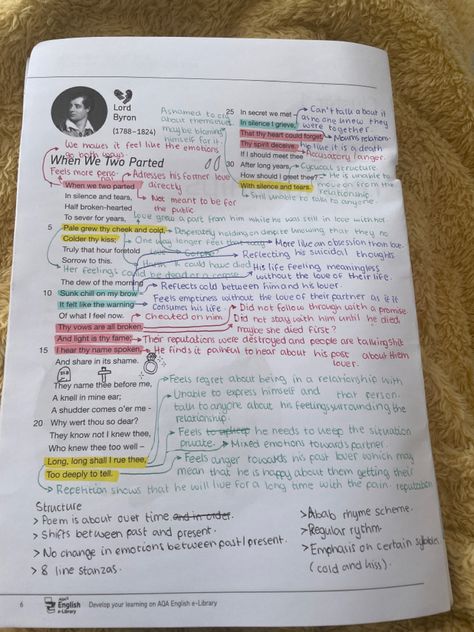 Lord
Byron
(1788–1824)
We makes it feel like the emotions
go both ways
When We Two Parted
Feels more perso-
nal
Addresses his former lover
directly
When we two parted
In silence and tears,
Not meant to be for
the public
Half broken-hearted
To sever for years,
Love grew a part from him while he was still in love with her
5 Pale grew thy cheek and cold,
Desperately holding on despite knowing that they no
Colder thy kiss;
One way longer feel that way
More like an obsession than love.
Truly that hour foretold
Love
Reflecting his suicidal thoughts
Sorrow to this.
could have died
His life feeling meaningless
without the love of their life.
Her feelings could be dead or a corpse
The dew of the morning
Reflects cold between him and his lover
10 Sunk chill on my brow
Feels emptiness without the love of their partner as if it
consumes his life
It felt like the warning
Did not follow through with a promise
Of what I feel now.
Cheated on him
Did not stay with him until he died
maybe she died first?
Thy vows are all broken,
And light is thy fame;
Their reputations were destroyed and people are talking shit
about them
15 I hear thy name spoken,
He finds it painful to hear about his past
lover
And share in its shame.
They name thee before me,
A knell in mine ear;
A shudder comes o'er me -
20 Why wert thou so dear?
They know not I knew thee,
Who knew thee too well –
Long, long shall I rue thee,
Too deeply to tell.
Feels regret about being in a relationship with
that person.
Unable to express himself and
talk to anyone about his feelings surrounding the
relationship.
Feels he needs to keep the situation
private.
Mixed emotions towards partner.
Feels anger towards his past lover which may
mean that he is happy about them getting their
reputation
Repetition shows that he will live for a long time with the pain.
Ashamed to
about themselves
may be blaming
himself for it all.
25 In secret we met –
In silence I grieve,
That thy heart could forget,
Thy spirit deceive.
If I should meet thee
30 After long years,
How should I greet thee? –
With silence and tears.
Can't talk about it
as no one knew they
were together.
Mourns relation-
ship like it is a death
Accusatory / anger.
Cyclical structure
He is unable to
move on from the
relationship.
Still unable to talk to anyone.
Structure
> Poem is about over time and in order.
> Shifts between past and present.
> No change in emotions between past/present.
> 8 line stanzas.
> Abab rhyme scheme.
> Regular rythm.
> Emphasis on certain sylables
(cold and kiss).
6
AQA
English
e-Library
Develop your learning on AQA English e-Library